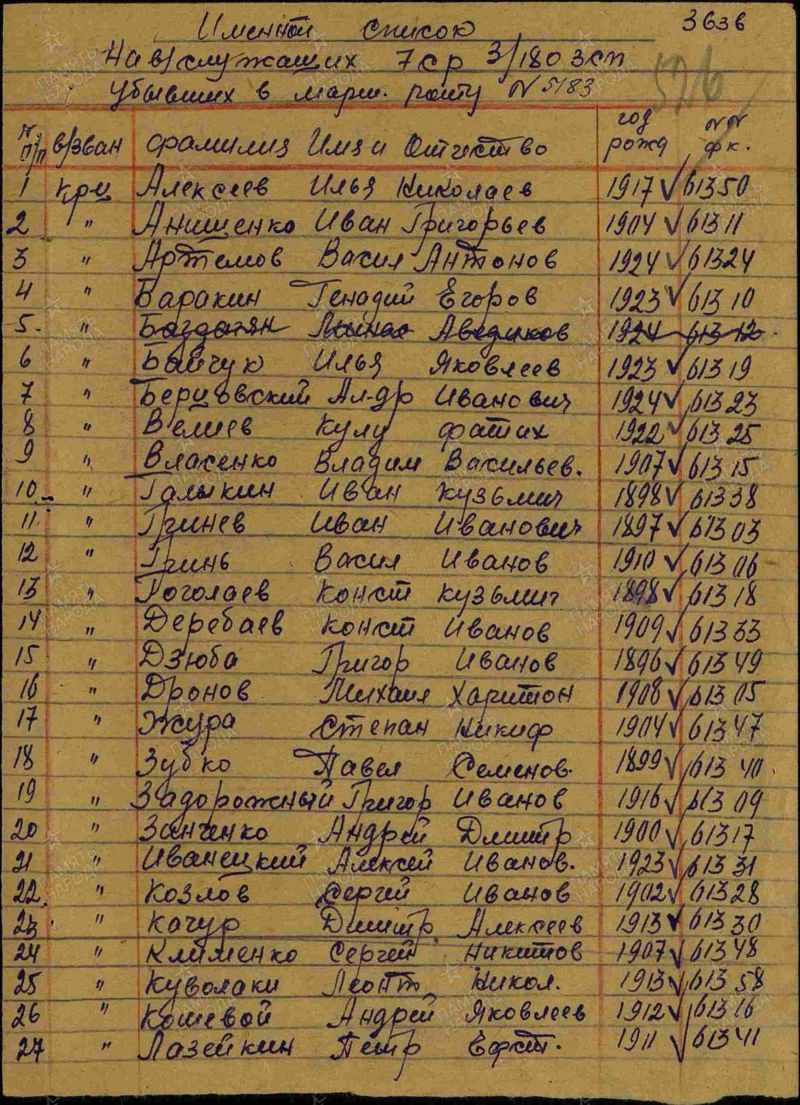 Именной список 3636
На в/служащих 7 ср 3/180 зсп
убывших в марш. роту № 5183
№ п/п в/зван фамилия Имя и Отчество год рожд №№ фк.
1 крц Алексеев Илья Николаев 1917 61350
2 " Анищенко Иван Григорьев 1904 61311
3 " Артемов Васил Антонов 1924 61324
4 " Баракин Генадий Егоров 1923 61310
5. " Багдатян Минас Аведиков 1924 61312
6 " Байчук Илья Яковлеев 1923 61319
7 " Берцовский Ал-др Иванович 1924 61323
8 " Велиев Кулу фатих 1922 61325
9 " Власенко Владим Васильев. 1907 61315
10 " Галыкин Иван Кузьмич 1898 61338
11 " Гринев Иван Иванович 1897 61303
12 " Гринь Васил Иванов 1910 61306
13 " Гоголаев Конст Кузьмич 1898 61318
14 " Деребаев Конст Иванов 1909 61333
15 " Дзюба Григор Иванов 1896 61349
16 " Дронов Михаил Харитон 1908 61305
17 " Жура Степан Никиф 1904 61347
18 " Зубко Павел Семенов. 1899 61340
19 " Задорожный Григор Иванов 1916 61309
20 " Занченко Андрей Дмитр 1900 61317
21 " Иванецкий Алексей Иванов. 1923 61331
22 " Козлов Сергей Иванов 1902 61328
23 " Качур Дмитр Алексеев 1913 61330
24 " Клименко Сергей Никитов 1907 61348
25 " Куволаки Леонт Никол. 1913 61358
26 " Кошевой Андрей Яковлеев 1912 61316
27 " Лазейкин Петр Ефст. 1911 61341